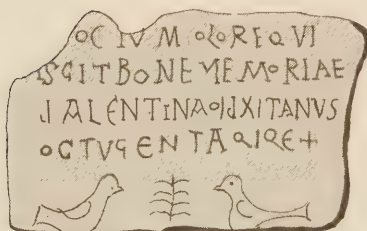 OC IVMOLO REQVI
ISCIT BONE MEMORIAE
VALENTINA QI VIXIT ANVS
OCTVGENTA